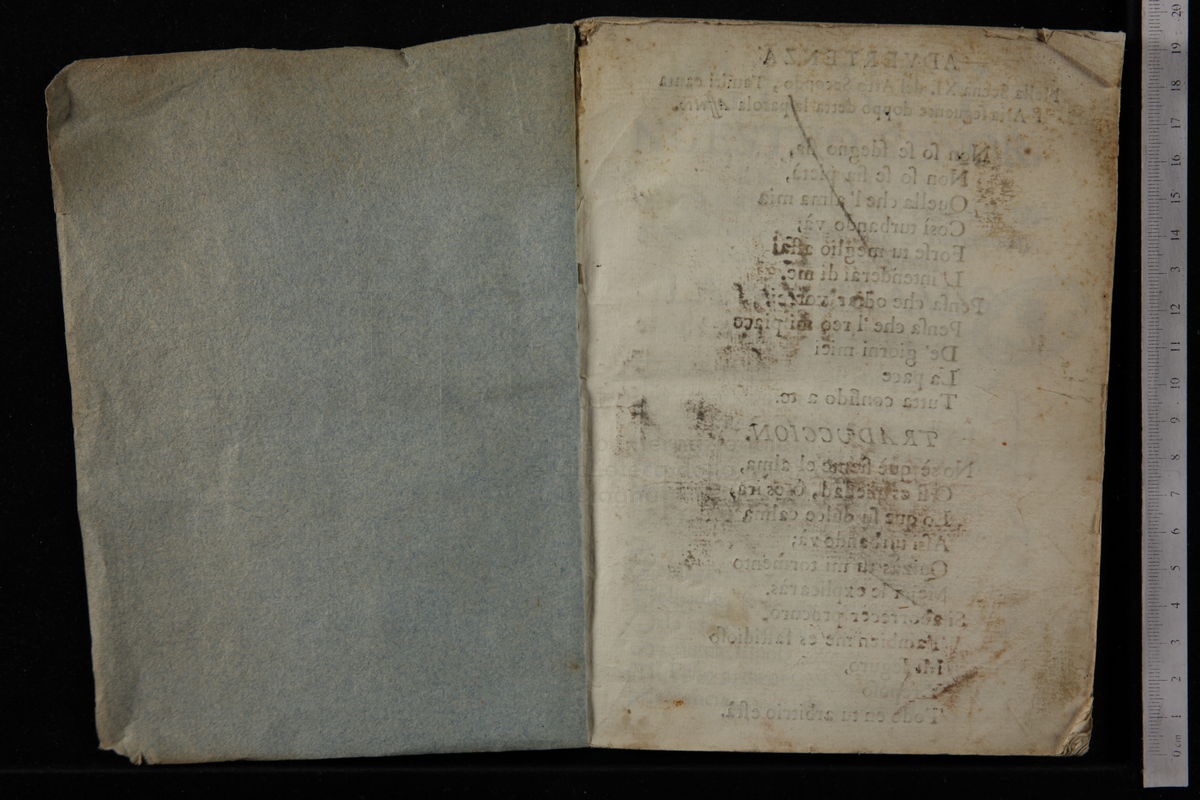 ADVERTENZA
Nella Scena XI. del Atto Secondo, Tamiri canta
l' Aria seguente doppo detta la parola
Non so se sdegno sia,
Non so se sia pietà,
Quella che l'alma mia
Così turbando và;
Forse tu meglio assai
L'intenderai di me.
Pensa che odiar vorrei
Pensa che'l reo mi piace
De' giorni miei
La pace
Tutta confido a te.
TRADUCCION.
No sè què siente el alma,
Si es piedad, ò es ira,
Lo que su dulce calma
Assi turbando và;
Quizàs tu mi tormento
Mejor le explicaràs.
Si aborrecer procuro,
Tambien me es fastidioso
Todo en tu arbitrio està.
0 cm 1 2 3 4 5 6 7 8 9 10 11 12 13 14 15 16 17 18 19 20